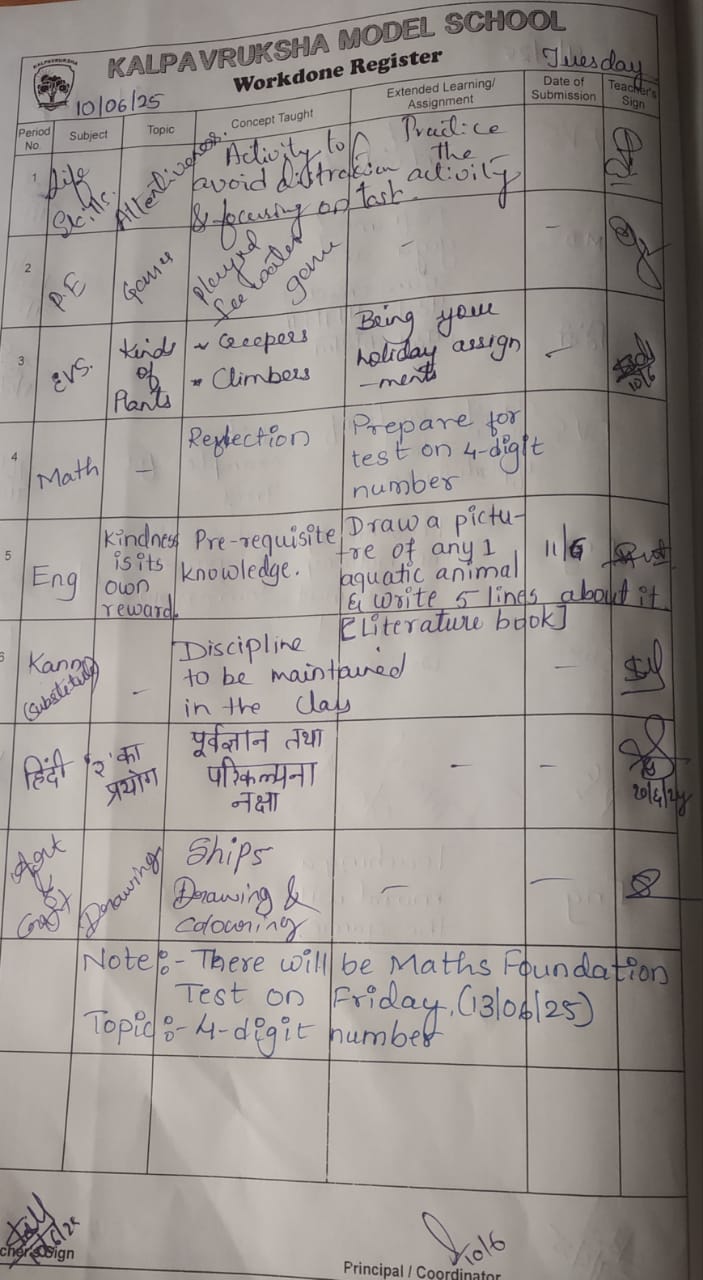 KALPAVRUKSHA
KALPAVRUKSHA MODEL SCHOOL
Workdone Register
10/06/25
Tuesday
Period No.
Subject
Topic
Concept Taught
Extended Learning/ Assignment
Date of Submission
Teacher's Sign
1
Life Skills.
Attentiveness.
Activity to
avoid distraction
& focusing on task.
Practice
the
activity
2
P.E
Games
Played
game
-
-
3
EVS.
Kinds
of
Plants
Creepers
Climbers
Being your
holiday assign
-ments
-
10/6
4
Math
-
Reflection
Prepare for
test on 4-digit
number
5
Eng
Kindness
is its
own
reward.
Pre-requisite
knowledge.
Draw a pictu-
-re of any 1
aquatic animal
& write 5 lines about it
[Literature book]
11/6
6
Kann
(Substitute)
-
Discipline
to be maintained
in the class
-
हिंदी
'र' का
प्रयोग
पूर्वज्ञान तथा
परिकल्पना
नक्षा
-
-
20/6/24
Art
&
Craft
Drawing
Ships
Drawing &
Colouring
-
-
Note:- There will be Maths Foundation
Test on Friday, (13/06/25)
Topic:- 4-digit number
Sign
10/6
Principal / Coordinator